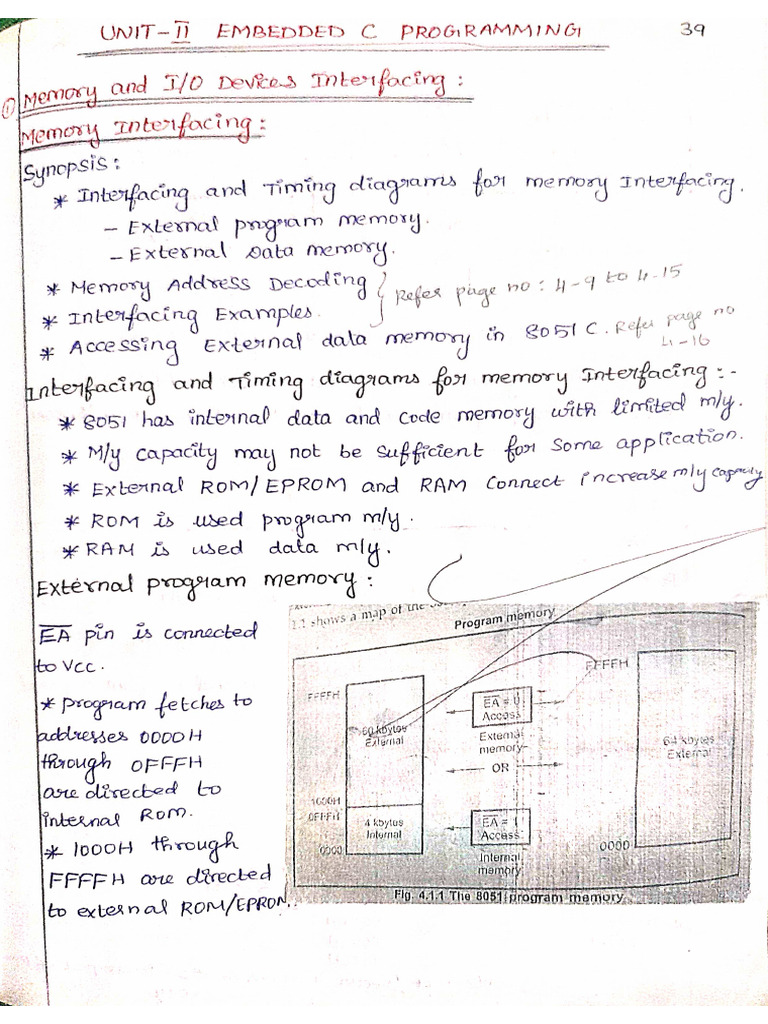 UNIT-II EMBEDDED C PROGRAMMING 39
① Memory and I/O Devices Interfacing:
Memory Interfacing:
Synopsis:
* Interfacing and Timing diagrams for memory Interfacing.
- External program memory.
- External Data memory.
* Memory Address Decoding
* Interfacing Examples.
Refer page no: 4-9 to 4-15
* Accessing External data memory in 8051 C. Refer page no
4-16
Interfacing and Timing diagrams for memory Interfacing:-
* 8051 has internal data and code memory with limited m/y.
* M/y capacity may not be sufficient for some application.
* External ROM/EPROM and RAM Connect increase m/y capacity
* ROM is used program m/y.
* RAM is used data m/y.
External program memory:
EA pin is connected
to Vcc.
* Program fetches to
addresses 0000H
through 0FFFH
are directed to
internal ROM.
* 1000H through
FFFFH are directed
to external ROM/EPROM.
1.1 shows a map of the
Program memory
FFFFH
60 kbytes
External
1000H
0FFFH
4 kbytes
Internal
0000
EA = 0
Access
External
memory
OR
EA = 1
Access
Internal
memory
FFFFH
64 kbytes
External
0000
Fig. 4.1.1 The 8051 program memory